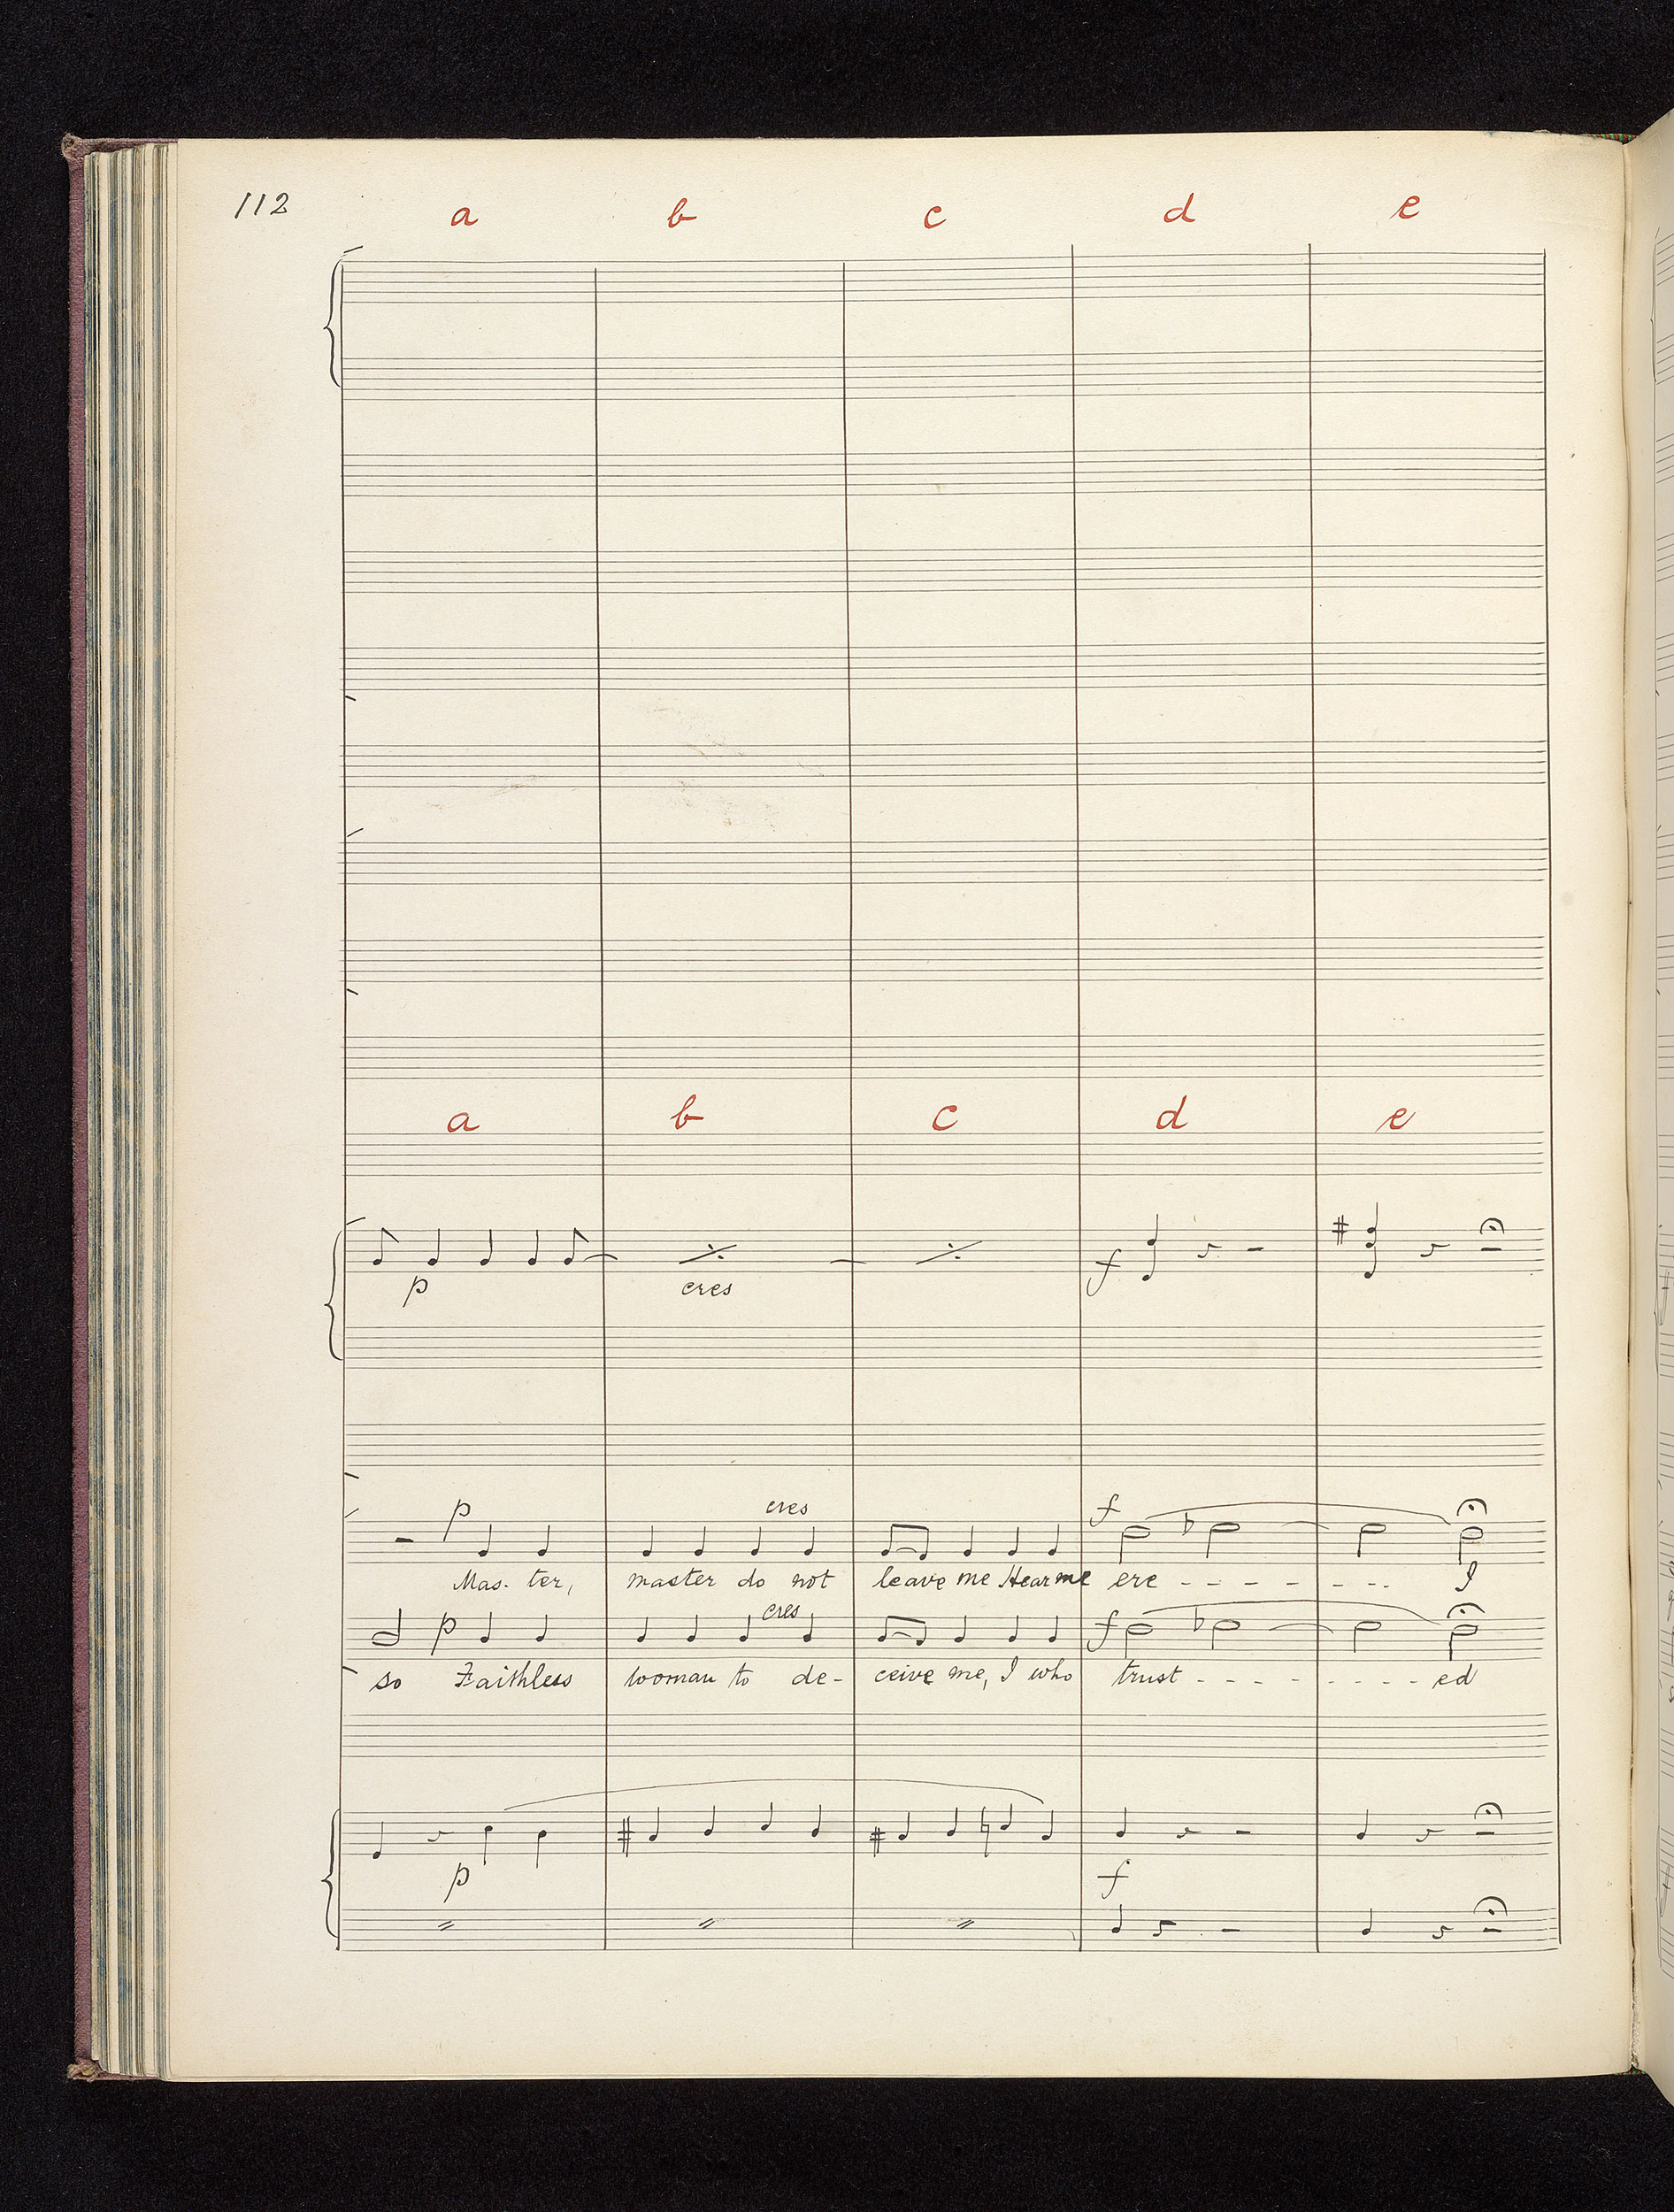 112
a b c d e
a b c d e
p cres f
p cres f
Mas- ter, master do not leave me Hear me ere - - - - - - - I
p cres f
so Faithless woman to de- ceive me, I who trust - - - - - - - - ed
p f